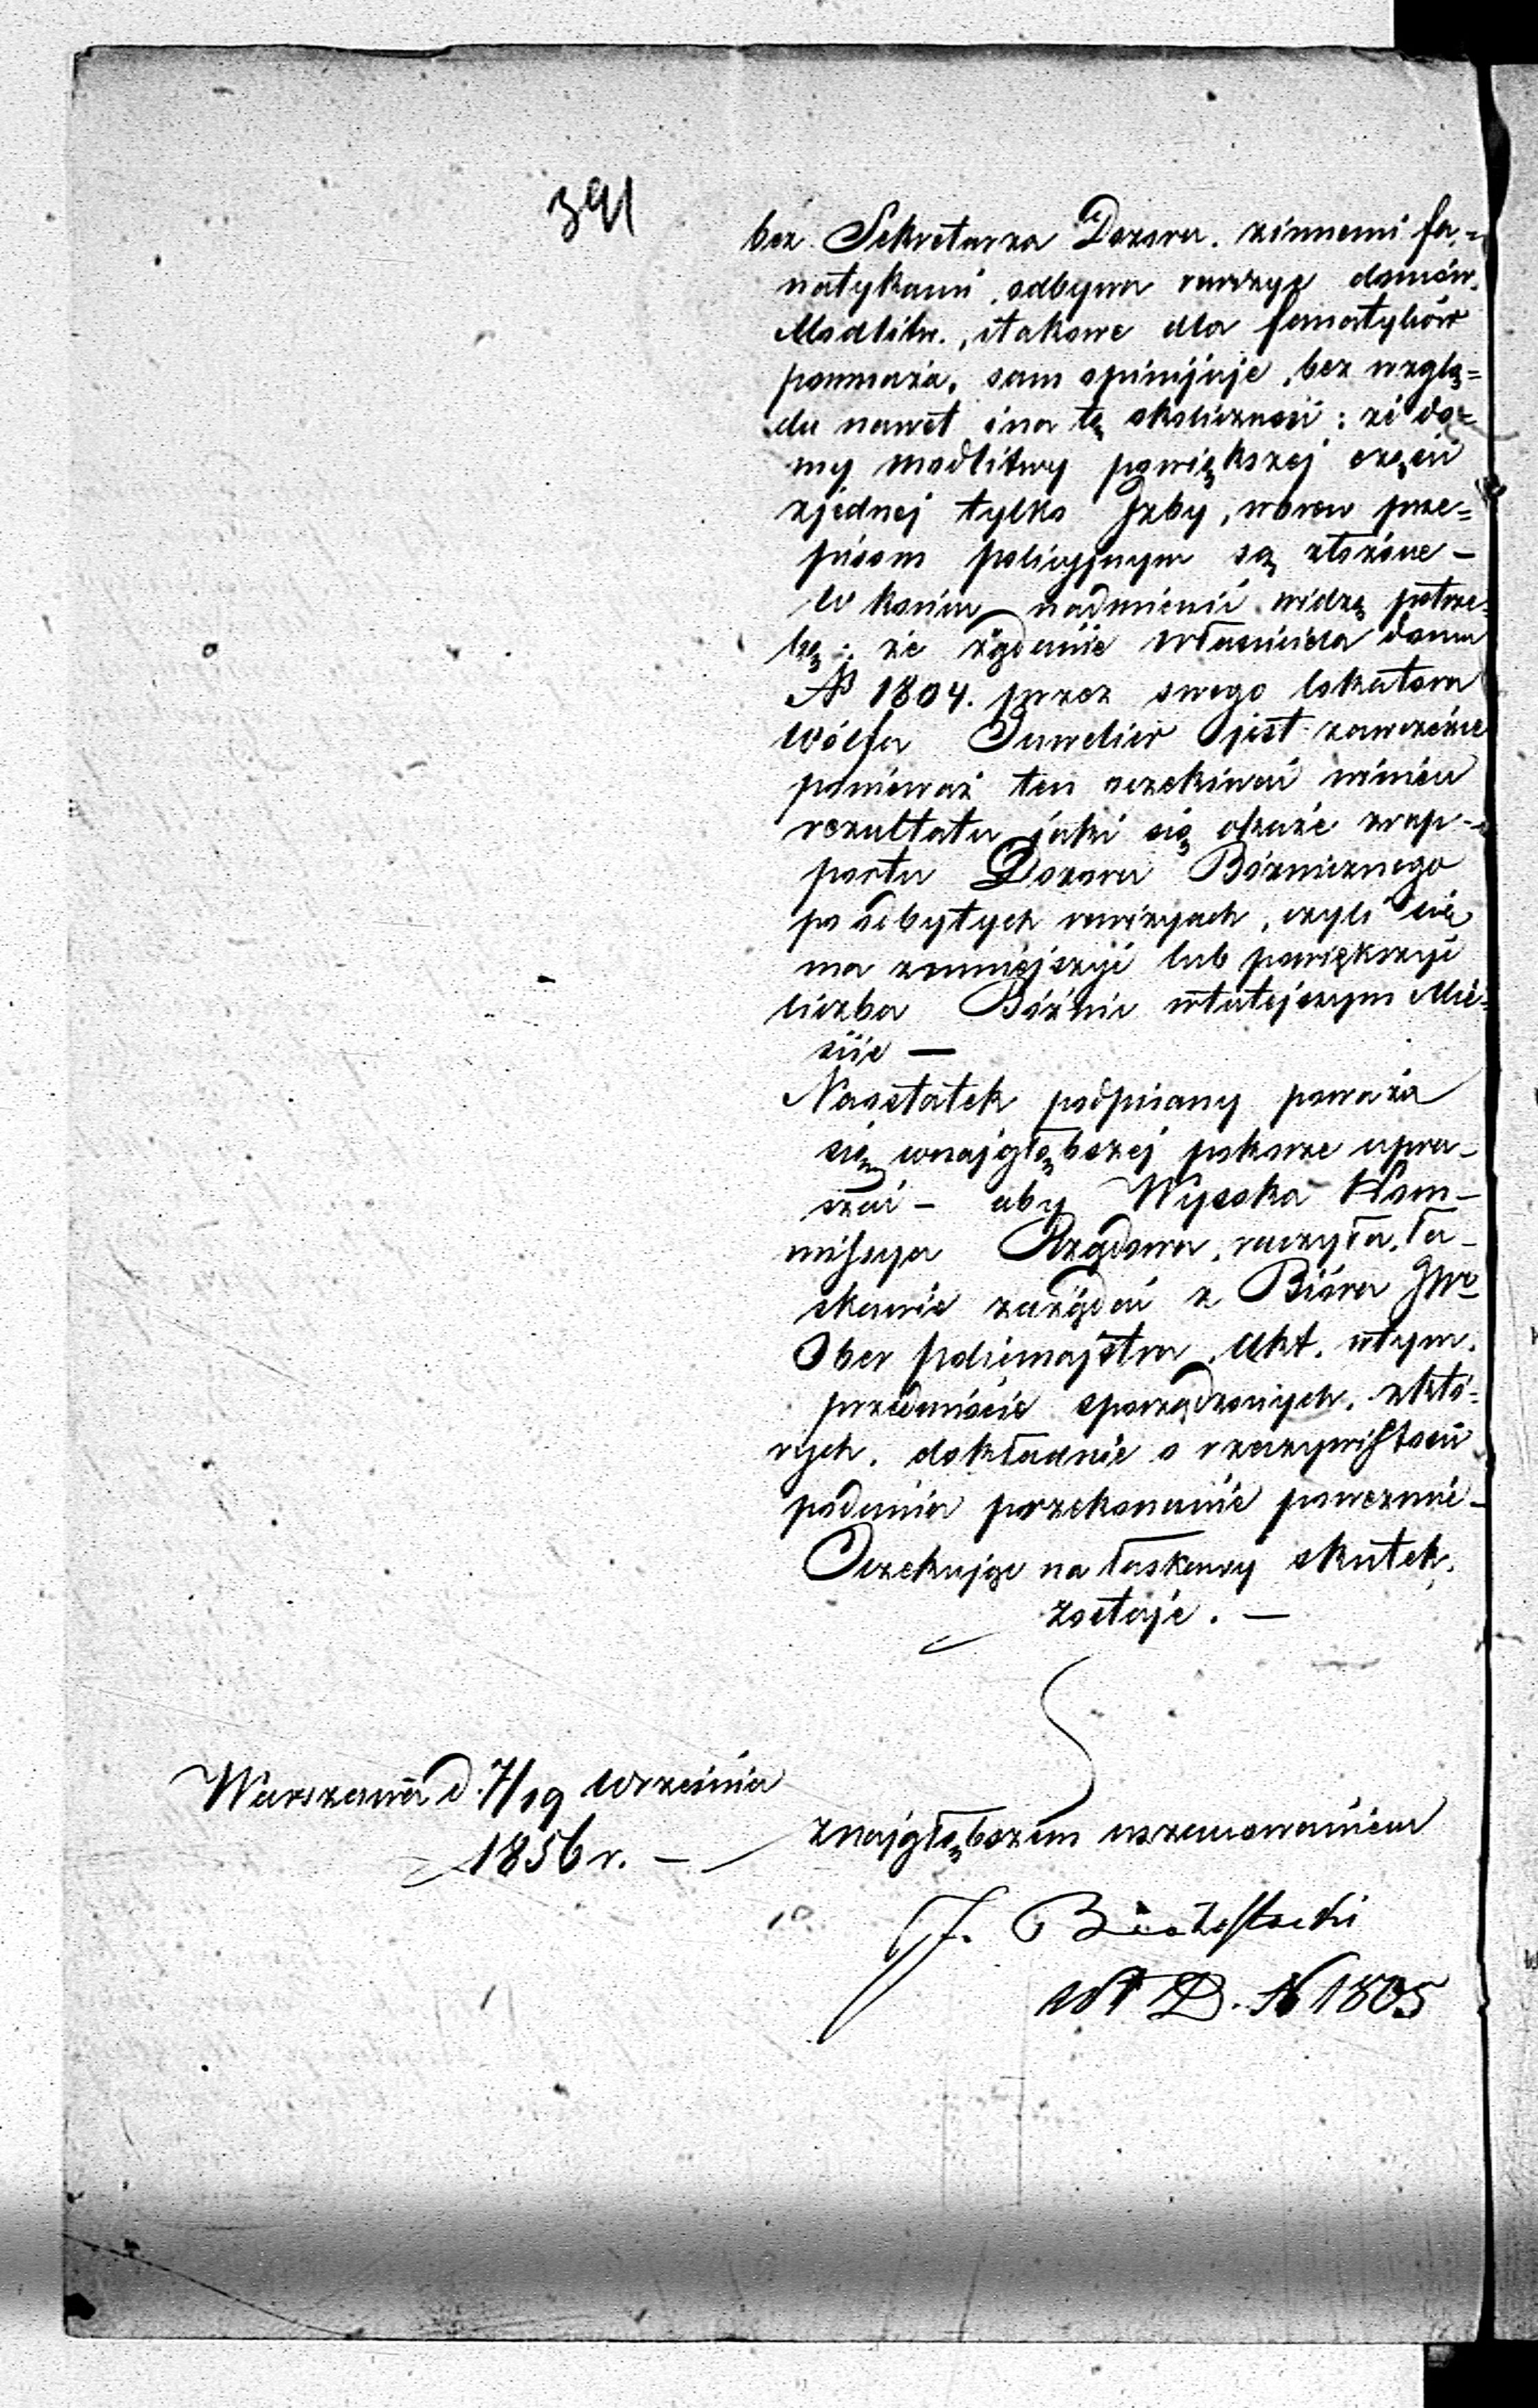 391
bez Sekretarza Dozoru. zinnemi fa=
natykami, odbywa rewizyę domów.
Modlitw., itakowe dla fanatyków
pomnaża, sam opinijuje, bez wzglę=
du nawet ina tę okoliczność: że do=
my modlitwy powiększej części
zjednej tylko Jzby, wbrew prze=
pisom policyjnym są złożone –
W końcu nadmienić widzę potrze=
bę: że żądanie Właściciela domu
№ 1804. przez swego lokatora
Wólfa Juwelier jest zawczesne
ponieważ ten oczekiwać winien
rezultatu jaki się okaże zrap-
portu Dozoru Bóżnicznego
po odbytych rewizyach, czyli się
ma zmniejszyć lub powiększyć
liczba Bóżnic wtutejszym Mie=
ście —
Naostatek podpisany poważa
się wnajgłębszej pokorze upra-
szać – aby Wysoka Kom-
missya Rządowa, raczyła, ła-
skawie zażądać z Bióra JWo
Ober policmajstra, Akt. wtym.
przedmiocie sporządzonych. zktó=
rych. dokładnie o rzeczywistości
podania przekonanie poweźmie –
Oczekując na łaskawy skutek.
zostaje. —
Warszawa d. 7/19 Września
1856 r. –
znajgłębszem uszanowaniem
J. Białostocki
Wł D. № 1805